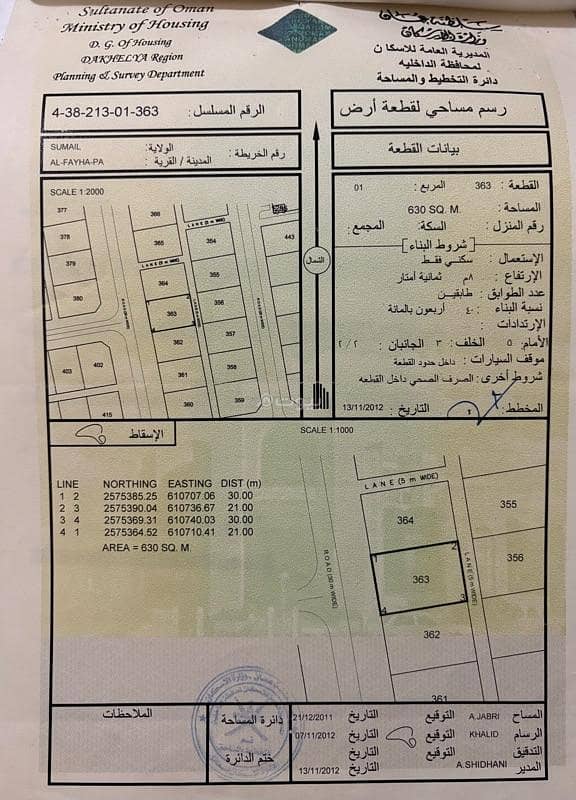 Sultanate of Oman
Ministry of Housing
D. G. Of Housing
DAKHELYA Region
Planning & Survey Department
المديرية العامة للاسكان
لمحافظة الداخليه
دائرة التخطيط والمساحة
رسم مساحي لقطعة أرض
الرقم المسلسل: 4-38-213-01-363
بيانات القطعة
رقم الخريطة:
الولاية: SUMAIL
المدينة / القرية: AL-FAYHA-PA
القطعة: 363 المربع: 01
المساحة: 630 SQ. M.
رقم المنزل: السكة: المجمع:
[شروط البناء]
الإستعمال: سكني فقط
الإرتفاع: ٨م ثمانية أمتار
عدد الطوابق: طابقين
نسبة البناء: ٤٠ أربعون بالمائة
الإرتدادات:
الأمام: ٥ الخلف: ٣ الجانبان: ٢/٢
موقف السيارات: داخل حدود القطعة
شروط أخرى: الصرف الصحي داخل القطعه
المخطط: التاريخ: 13/11/2012
SCALE 1:2000
377
378
379
380
366
LANE (5 m WIDE)
365
LANE (5 m WIDE)
364
363
362
361
360
354
355
356
357
358
359
443
403
402
415
الشمال
الإسقاط
SCALE 1:1000
LINE NORTHING EASTING DIST (m)
1 2 2575385.25 610707.06 30.00
2 3 2575390.04 610736.67 21.00
3 4 2575369.31 610740.03 30.00
4 1 2575364.52 610710.41 21.00
AREA = 630 SQ. M.
LANE (5 m WIDE)
364
355
356
1
2
363
3
4
362
361
LANE (5 m WIDE)
الملاحظات
دائرة المساحة
ختم الدائرة
المساح A.JABRI التوقيع التاريخ 21/12/2011
الرسام KHALID التوقيع التاريخ 07/11/2012
التدقيق التوقيع التاريخ
المدير A.SHIDHANI التوقيع التاريخ 13/11/2012